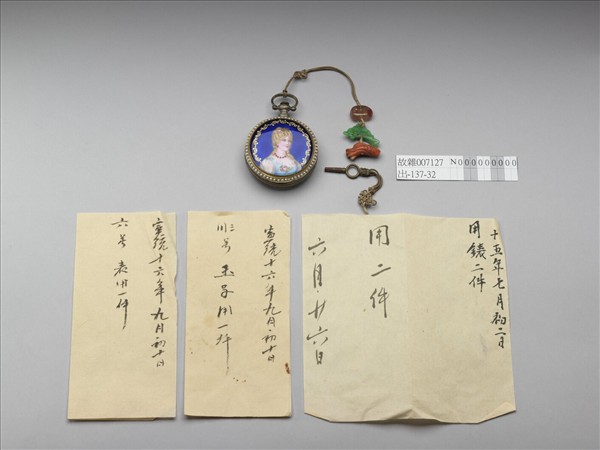 故雜007127 N000000000
出-137-32
十五年七月初二日
用二件
用二件
六月廿六日
宣統十六年九月初十日
号 用一件
宣統十六年九月初十日
六号 表用一件